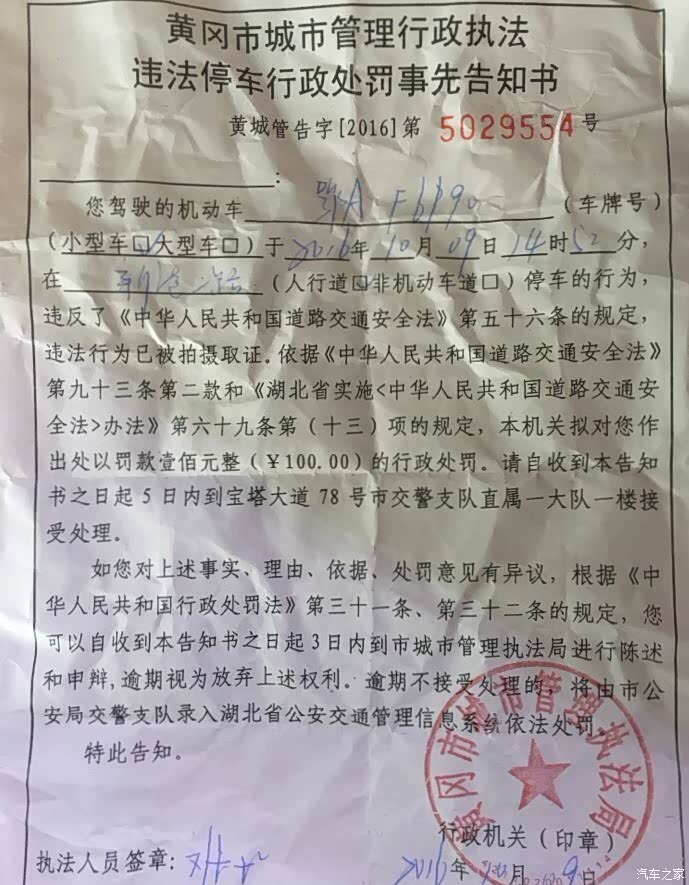 黄冈市城市管理行政执法
违法停车行政处罚事先告知书
黄城管告字[2016]第 5029554 号
:
您驾驶的机动车 鄂A F6P90 (车牌号)
(小型车☑大型车□)于 2016 年 10 月 09 日 14 时 52 分,
在 (人行道□非机动车道□)停车的行为,
违反了《中华人民共和国道路交通安全法》第五十六条的规定,
违法行为已被拍摄取证。依据《中华人民共和国道路交通安全法》
第九十三条第二款和《湖北省实施<中华人民共和国道路交通安
全法>办法》第六十九条第(十三)项的规定,本机关拟对您作
出处以罚款壹佰元整(¥100.00)的行政处罚。请自收到本告知
书之日起 5 日内到宝塔大道 78 号市交警支队直属一大队一楼接
受处理。
如您对上述事实、理由、依据、处罚意见有异议,根据《中
华人民共和国行政处罚法》第三十一条、第三十二条的规定,您
可以自收到本告知书之日起 3 日内到市城市管理执法局进行陈述
和申辩,逾期视为放弃上述权利。逾期不接受处理的,将由市公
安局交警支队录入湖北省公安交通管理信息系统依法处罚。
特此告知。
黄冈市城市管理执法局
行政机关(印章)
执法人员签章: 2016 年 月 9 日
汽车之家